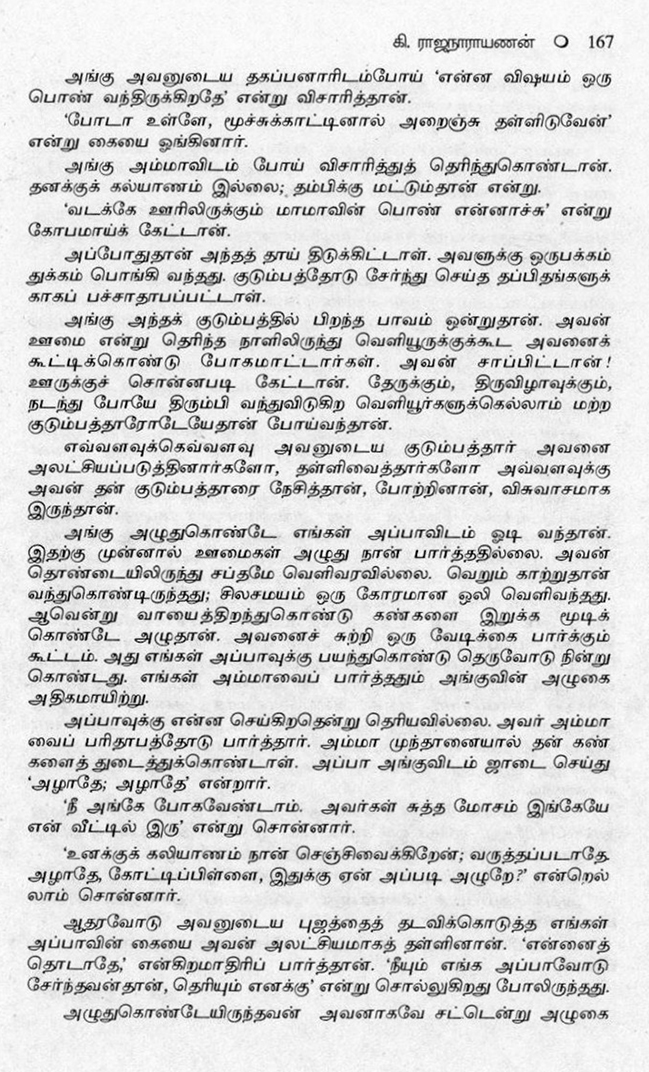 கி. ராஜநாராயணன் ❍ 167
அங்கு அவனுடைய தகப்பனாரிடம்போய் ‘என்ன விஷயம் ஒரு
பொண் வந்திருக்கிறதே’ என்று விசாரித்தான்.
‘போடா உள்ளே, மூச்சுக்காட்டினால் அறைஞ்சு தள்ளிடுவேன்’
என்று கையை ஓங்கினார்.
அங்கு அம்மாவிடம் போய் விசாரித்துத் தெரிந்துகொண்டான்.
தனக்குக் கல்யாணம் இல்லை; தம்பிக்கு மட்டும்தான் என்று.
‘வடக்கே ஊரிலிருக்கும் மாமாவின் பொண் என்னாச்சு’ என்று
கோபமாய்க் கேட்டான்.
அப்போதுதான் அந்தத் தாய் திடுக்கிட்டாள். அவளுக்கு ஒருபக்கம்
துக்கம் பொங்கி வந்தது. குடும்பத்தோடு சேர்ந்து செய்த தப்பிதங்களுக்
காகப் பச்சாதாபப்பட்டாள்.
அங்கு அந்தக் குடும்பத்தில் பிறந்த பாவம் ஒன்றுதான். அவன்
ஊமை என்று தெரிந்த நாளிலிருந்து வெளியூருக்குக்கூட அவனைக்
கூட்டிக்கொண்டு போகமாட்டார்கள். அவன் சாப்பிட்டான்!
ஊருக்குச் சொன்னபடி கேட்டான். தேருக்கும், திருவிழாவுக்கும்,
நடந்து போயே திரும்பி வந்துவிடுகிற வெளியூர்களுக்கெல்லாம் மற்ற
குடும்பத்தாரோடேயேதான் போய்வந்தான்.
எவ்வளவுக்கெவ்வளவு அவனுடைய குடும்பத்தார் அவனை
அலட்சியப்படுத்தினார்களோ, தள்ளிவைத்தார்களோ அவ்வளவுக்கு
அவன் தன் குடும்பத்தாரை நேசித்தான், போற்றினான், விசுவாசமாக
இருந்தான்.
அங்கு அழுதுகொண்டே எங்கள் அப்பாவிடம் ஓடி வந்தான்.
இதற்கு முன்னால் ஊமைகள் அழுது நான் பார்த்ததில்லை. அவன்
தொண்டையிலிருந்து சப்தமே வெளிவரவில்லை. வெறும் காற்றுதான்
வந்துகொண்டிருந்தது; சிலசமயம் ஒரு கோரமான ஒலி வெளிவந்தது.
ஆவென்று வாயைத்திறந்துகொண்டு கண்களை இறுக்க மூடிக்
கொண்டே அழுதான். அவனைச் சுற்றி ஒரு வேடிக்கை பார்க்கும்
கூட்டம். அது எங்கள் அப்பாவுக்கு பயந்துகொண்டு தெருவோடு நின்று
கொண்டது. எங்கள் அம்மாவைப் பார்த்ததும் அங்குவின் அழுகை
அதிகமாயிற்று.
அப்பாவுக்கு என்ன செய்கிறதென்று தெரியவில்லை. அவர் அம்மா
வைப் பரிதாபத்தோடு பார்த்தார். அம்மா முந்தானையால் தன் கண்
களைத் துடைத்துக்கொண்டாள். அப்பா அங்குவிடம் ஜாடை செய்து
‘அழாதே; அழாதே’ என்றார்.
‘நீ அங்கே போகவேண்டாம். அவர்கள் சுத்த மோசம் இங்கேயே
என் வீட்டில் இரு’ என்று சொன்னார்.
‘உனக்குக் கலியாணம் நான் செஞ்சிவைக்கிறேன்; வருத்தப்படாதே.
அழாதே, கோட்டிப்பிள்ளை, இதுக்கு ஏன் அப்படி அழுறே?’ என்றெல்
லாம் சொன்னார்.
ஆதரவோடு அவனுடைய புஜத்தைத் தடவிக்கொடுத்த எங்கள்
அப்பாவின் கையை அவன் அலட்சியமாகத் தள்ளினான். ‘என்னைத்
தொடாதே,’ என்கிறமாதிரிப் பார்த்தான். ‘நீயும் எங்க அப்பாவோடு
சேர்ந்தவன்தான், தெரியும் எனக்கு’ என்று சொல்லுகிறது போலிருந்தது.
அழுதுகொண்டேயிருந்தவன் அவனாகவே சட்டென்று அழுகை